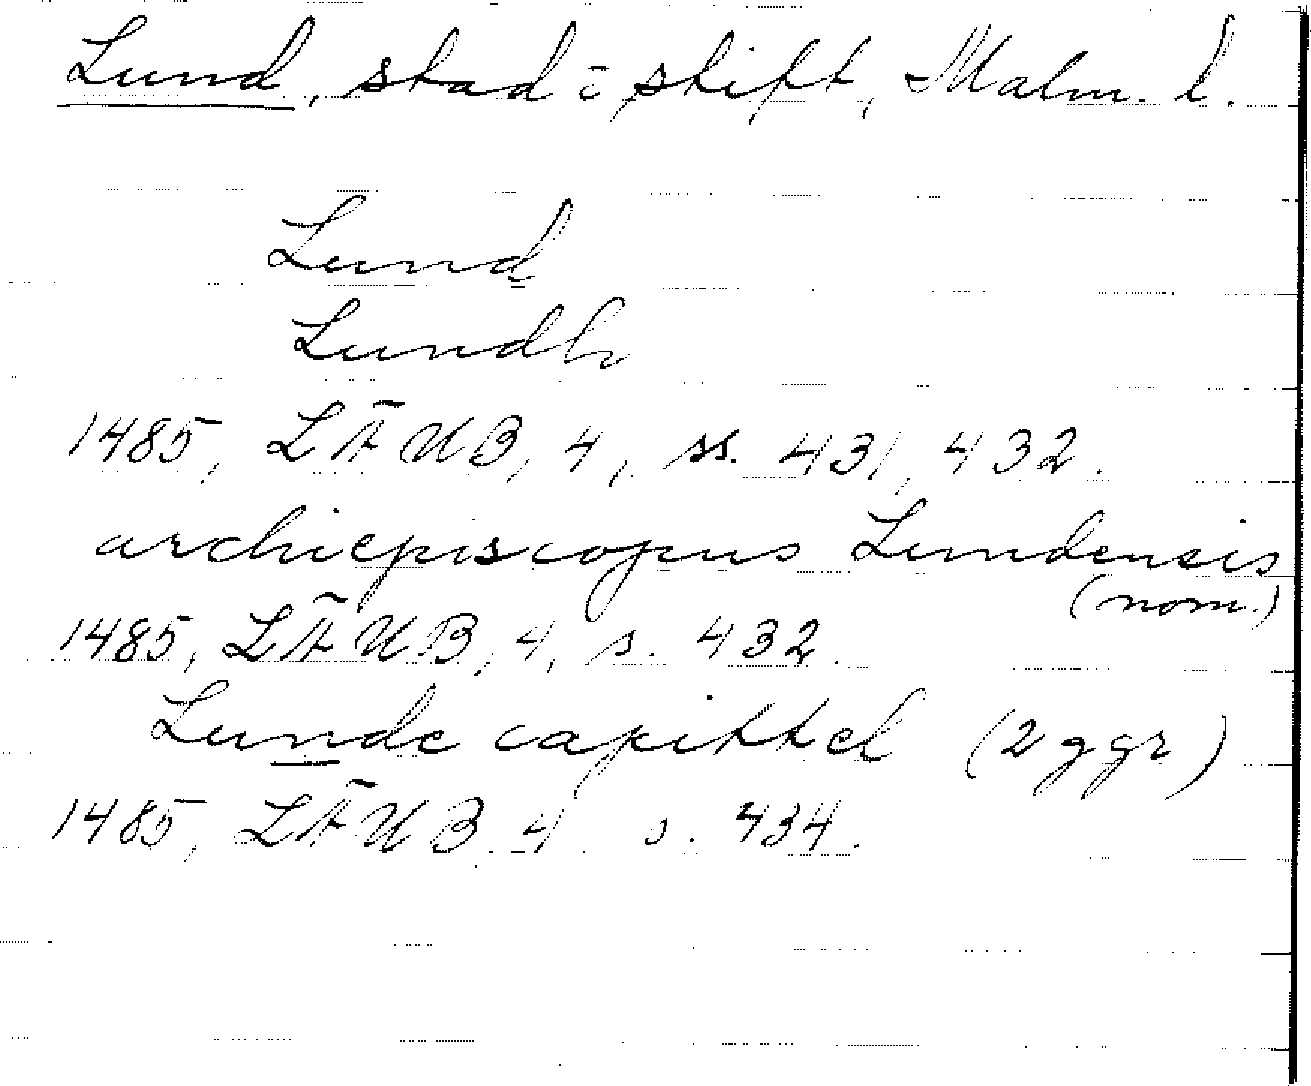 Lund, stad o skift, Malm. l.
Lund
Lundh
1485, LÄUB, 4, ss. 431, 432.
archiepiscopus Lundensis
(nom.)
1485, LÄUB, 4, s. 432.
Lunde capittel (2 ggr)
1485, LÄUB 4 s. 434.